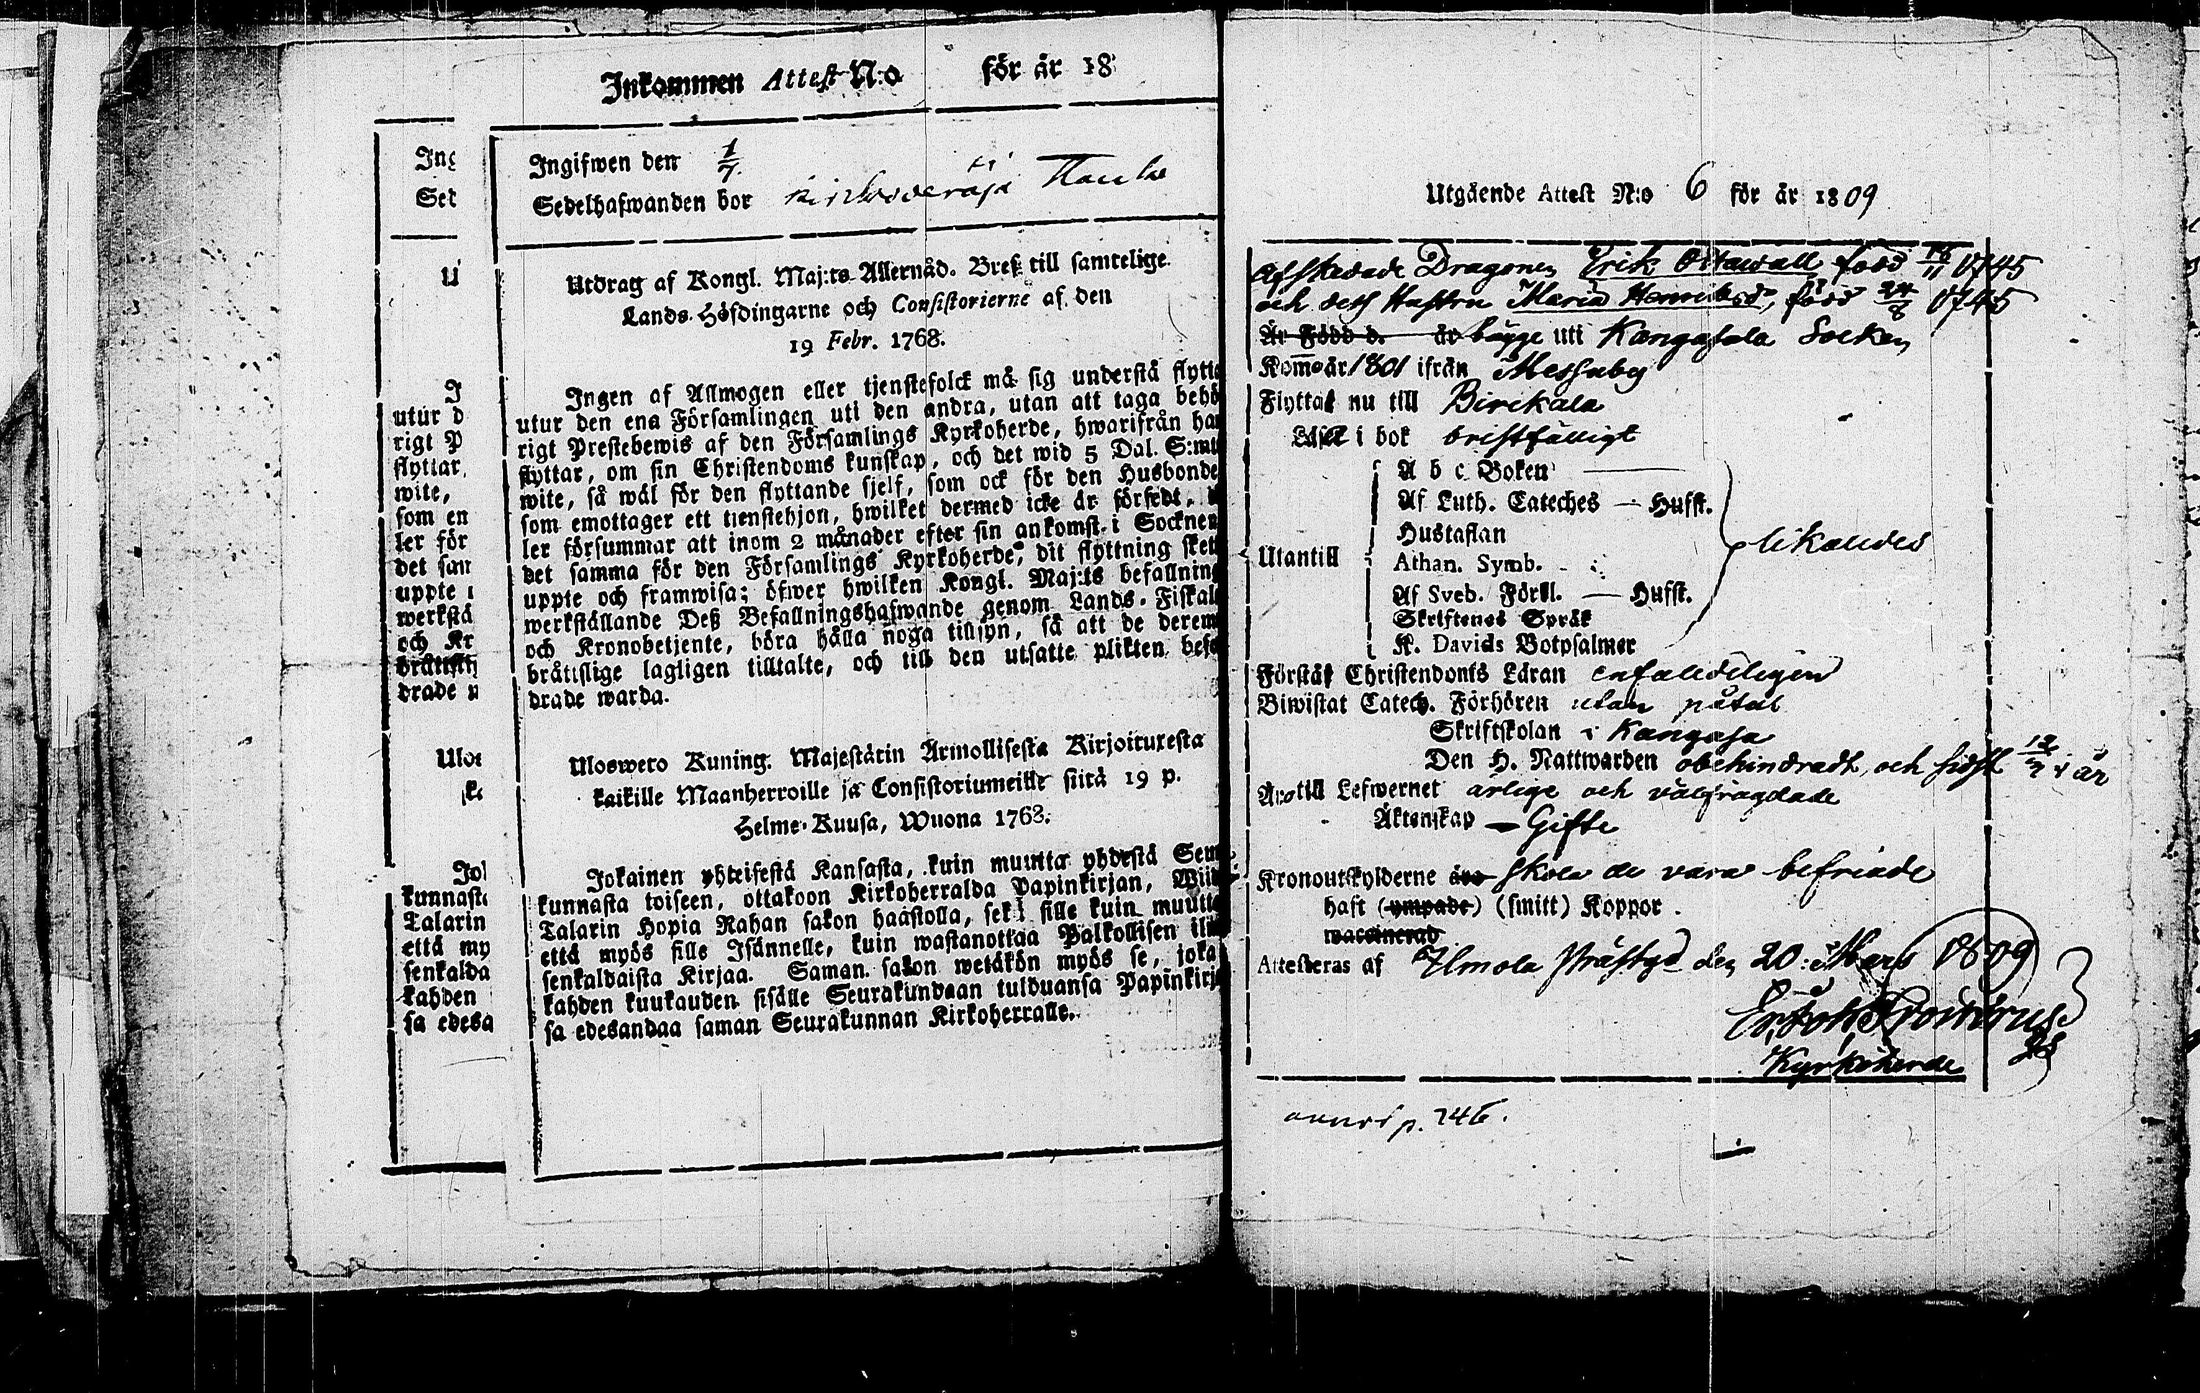 Inkommen Attest N:o för år 18
Ingifwen den 1/7.
Sedelhafwanden bor
Utdrag af Kongl. Maj:ts Allernåd. Bref till samtelige
Lands-Höfdingarne och Consistorierne af den
19 Febr. 1768.
Ingen af Allmogen eller tjenstefolck må sig understå flytta
utur den ena Församlingen uti den andra, utan att taga behö
rigt Prestebewis af den Församlings Kyrkoherde, hwarifrån han
flyttar, om sin Christendoms kunskap, och det wid 5 Dal. S:mts
wite, så wäl för den flyttande sjelf, som ock för den Husbonde
som emottager ett tienstehjon, hwilket dermed icke är försedt,
ler försummar att inom 2 månader efter sin ankomst i Socknen
det samma för den Församlings Kyrkoherde, dit flyttning skett
uppte och framwisa; öfwer hwilken Kongl. Maj:ts befallning
werkställande Deß Befallningshafwande genom Lands-Fiskale
och Kronobetjente, böra hålla noga tillsyn, så att de derem
bråttslige lagligen tilltalte, och till den utsatte plikten befo
drade warda.
Uloswero Kuning. Majestätin Armollisesta Kirjoituxesta
kaikille Maanherroille ja Consistoriumeille siitä 19 p.
Helme-Kuusa, Wuona 1768.
Jokainen yhteisestä Kansasta, kuin muutta yhdestä Seur
kunnasta toiseen, ottakoon Kirkoherralda Papinkirjan, Wiid
Talarin Hopia Rahan sakon haastolla, sekä sille kuin muutta
että myös sille Isännelle, kuin wastanottaa Palkollisen ilm
senkaldaista Kirjaa. Saman sakon wetäkön myös se, joka
kahden kuukauden sisälle Seurakundaan tulduansa Papinkirj
sa edesandaa saman Seurakunnan Kirkoherralle.
Utgående Attest N:o 6 för år 1809
Afskedade Dragonen Erik Ottawall född 16/11 1745
och dess Hustru Maria Henriksdr, född 24/8 1745
Är Född d. år bägge uti Kangasala Socken
Kom år 1801 ifrån Messuby
Flyttat nu till Birkala
Läser i bok bristfälligt
Utantill
A b c Boken
Af Luth. Cateches — Hufst.
Hustaflan
Athan. Symb.
Af Sveb. Förkl. — Hufst.
Skriftenes Språk
K. Davids Botpsalmer
likaledes
Förstår Christendoms Läran enfaldeligen
Biwistat Catech. Förhören utan påtal
Skriftskolan i Kangasa
Den H. Nattwarden obehindradt, och sidst 12/7 i år
Äro till Lefwernet ärlige och välfrägdade
Äktenskap — Gifte
Kronoutskylderne äro skola de vara befriade
haft (ympade) (smitt) Koppor.
waccinerad
Attesteras af Ilmola Prästgd den 20 Mars 1809
Kyrkoherde
p. 246.